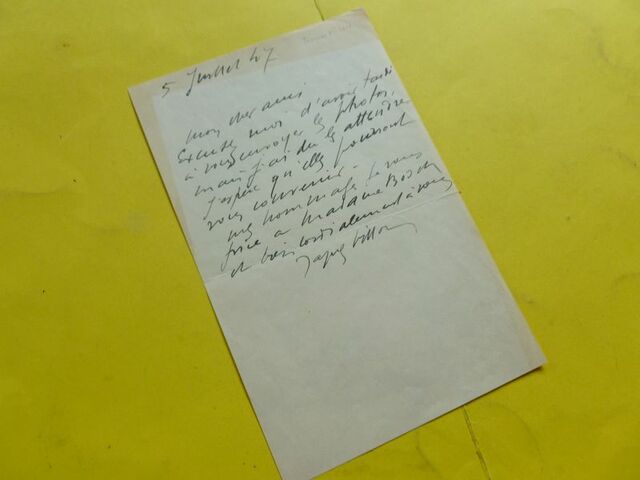 5 Juillet 47
mon cher ami
Excusez moi d'avoir tardé
à vous envoyer les photos,
mais j'ai dû les attendre
J'espère qu'elles pourront
vous convenir.
mes hommages je vous
prie à Madame
et bien cordialement à vous
Jacques Villon